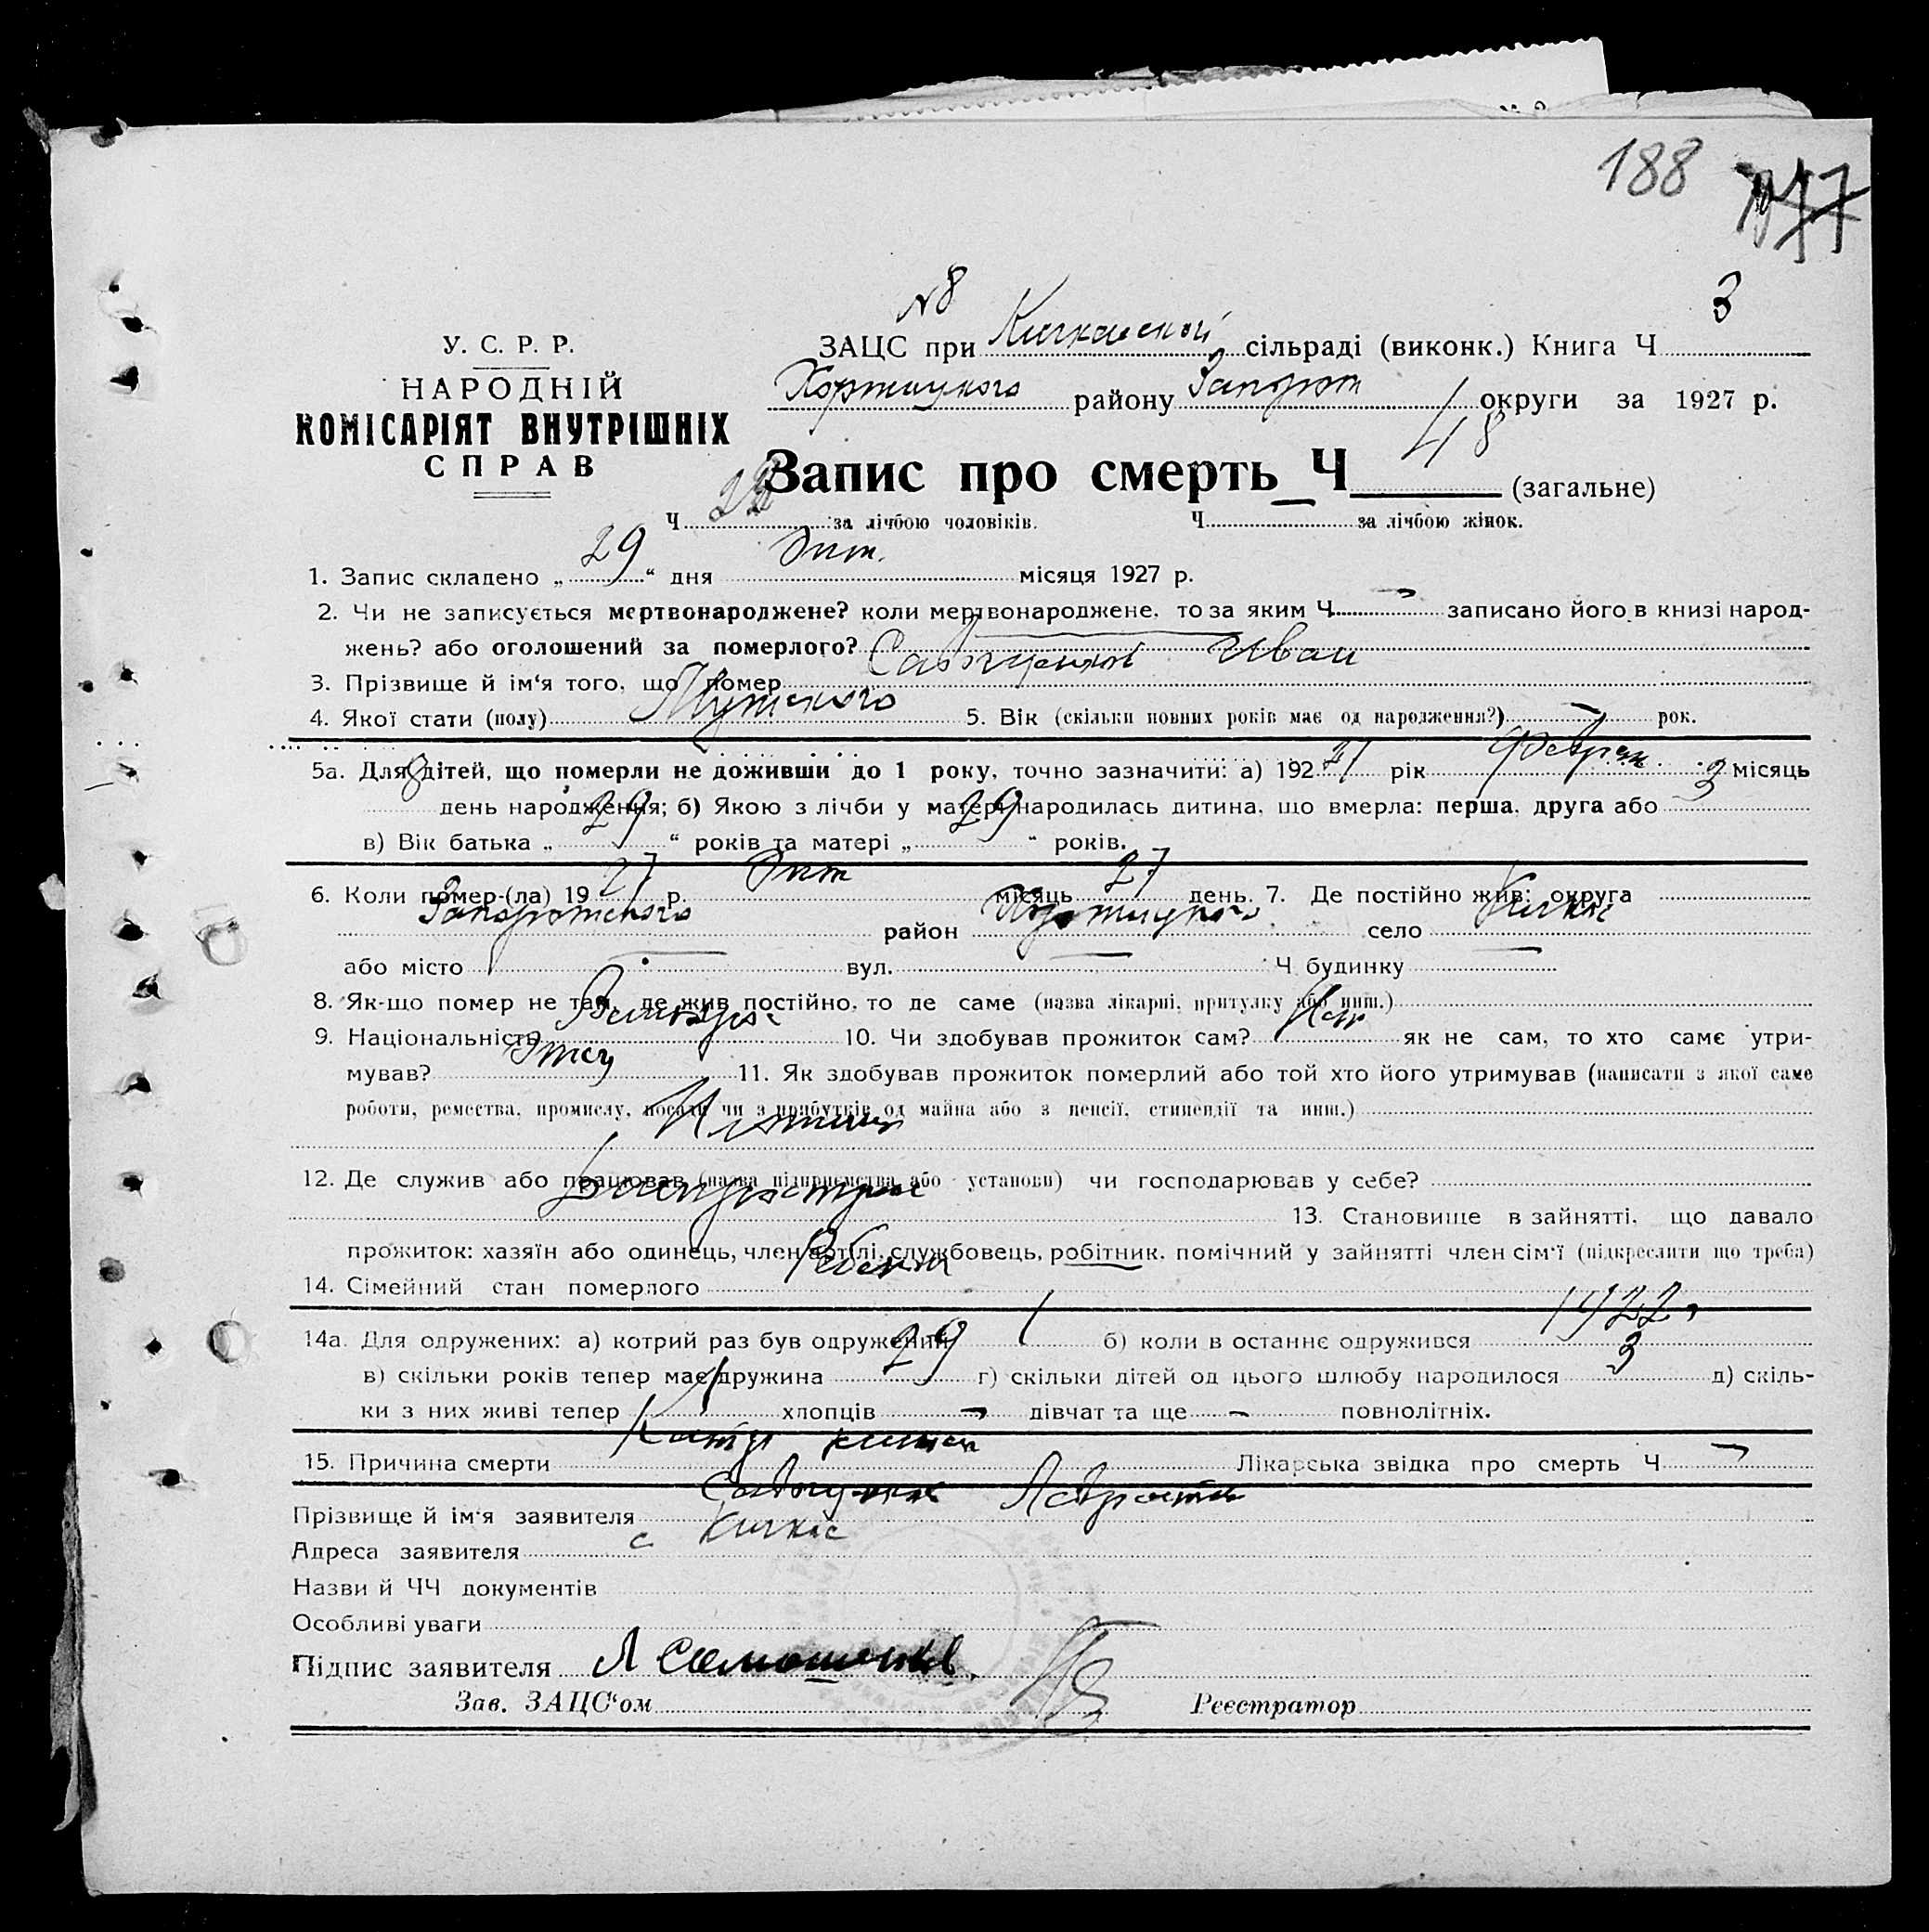 188 177
№8
У. С. Р. Р.
НАРОДНІЙ
КОМІСАРІЯТ ВНУТРІШНІХ
СПРАВ
ЗАЦС при Кичкасской сільраді (виконк.) Книга Ч 3
Хортицкого району Запорож округи за 1927 р.
Запис про смерть Ч 48 (загальне)
Ч 22 за лічбою чоловіків. Ч за лічбою жінок.
1. Запис складено „ 29 “ дня Окт. місяця 1927 р.
2. Чи не записується мертвонароджене? коли мертвонароджене, то за яким Ч – записано його в книзі народ-
жень? або оголошений за померлого?
3. Прізвище й ім‘я того, що помер Иван
4. Якої стати (полу) Мужского 5. Вік (скільки повних років має од народження?) – рок.
5а. Для дітей, що померли не доживши до 1 року, точно зазначити: а) 192 7 рік Феврал. місяць
8 день народження; б) Якою з лічби у матері народилась дитина, що вмерла: перша, друга або 3
в) Вік батька „ 29 “ років та матері „ 29 “ років.
6. Коли помер-(ла) 19 27 р. Окт місяць 27 день. 7. Де постійно жив: округа
Запорожского район Хортицкого село Кичкас
або місто – вул. – Ч будинку –
8. Як-що помер не там, де жив постійно, то де саме (назва лікарні, притулку або инш.)
9. Національність 10. Чи здобував прожиток сам? Нет як не сам, то хто саме утри-
мував? Отец 11. Як здобував прожиток померлий або той хто його утримував (написати з якої саме
роботи, ремества, промислу, посади чи з прибутків од майна або з пенсії, стипендії та инш.)
Плотник
12. Де служив або працював (назва підприємства або установи) чи господарював у себе?
Днепрострое 13. Становище в зайнятті, що давало
прожиток: хазяїн або одинець, член артілі, службовець, робітник, помічний у зайнятті член сім‘ї (підкреслити що треба)
14. Сімейний стан померлого Ребенок
14а. Для одружених: а) котрий раз був одружений 1 б) коли в останнє одружився 1922 г
в) скільки років тепер має дружина 29 г) скільки дітей од цього шлюбу народилося 3 д) скіль-
ки з них живі тепер 1 хлопців – дівчат та ще – повнолітніх.
15. Причина смерти Катар кишек Лікарська звідка про смерть Ч –
Прізвище й ім‘я заявителя
Адреса заявителя с Кичкас
Назви й ЧЧ документів
Особливі уваги
Підпис заявителя
Зав. ЗАЦС‘ом Реєстратор